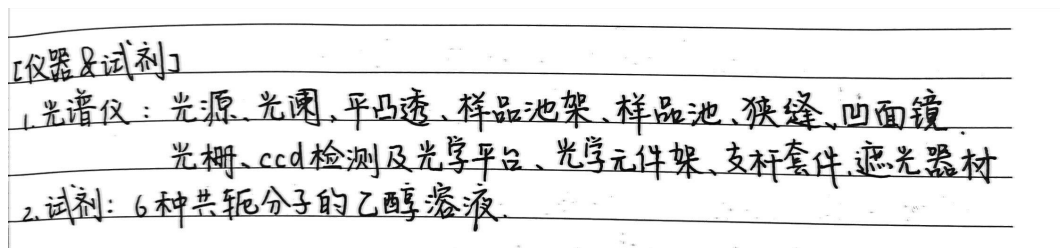 [仪器&试剂]
1.光谱仪：光源、光阑、平凸透、样品池架、样品池、狭缝、凹面镜、
光栅、ccd检测及光学平台、光学元件架、支杆套件、遮光器材
2.试剂：6种共轭分子的乙醇溶液.